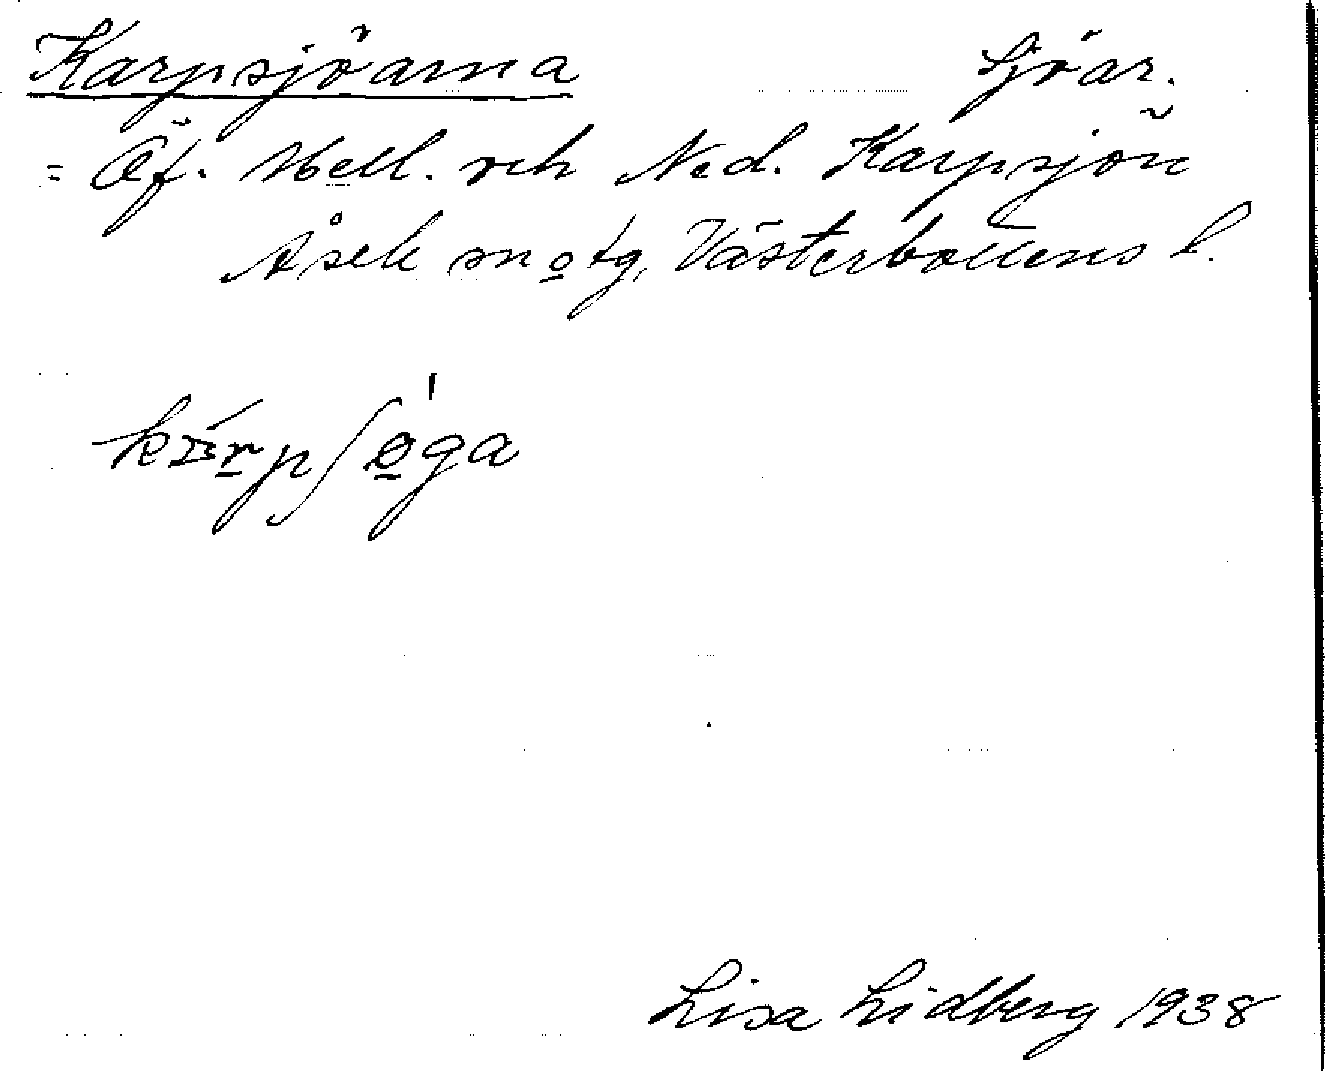 Karpsjöarna Sjöar.
= Öf. Mell. och Ned. Karpsjön
Åsele sn o tg, Västerbottens l.
Lisa Lidberg 1938